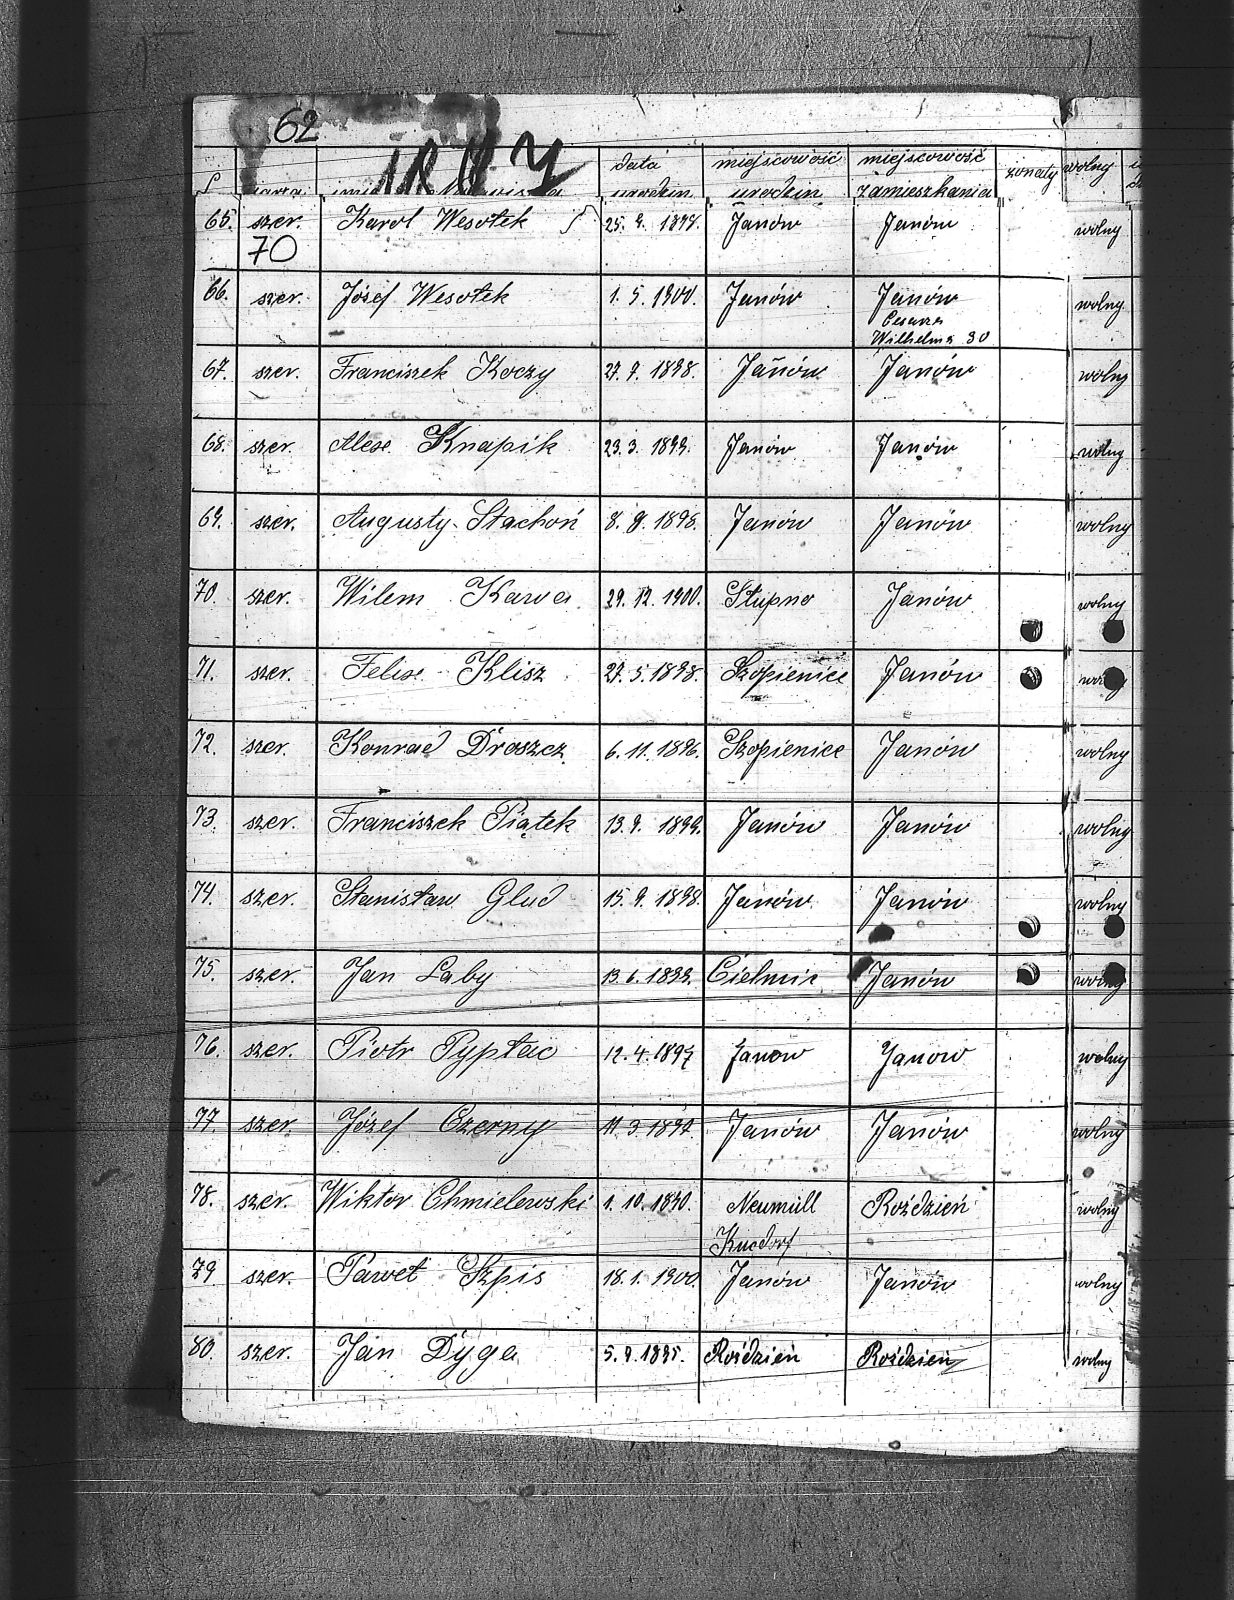 62
data miejscowość miejscowość żonaty wolny
urodzin urodzin zamieszkania
65. szer. Karol Wesołek 25. 9. 1898. Janów Janów wolny
70
66. szer. Józef Wesołek 1. 5. 1900. Janów Janów wolny
Cesarza
Wilhelma 30
67. szer. Franciszek Koczy 27. 9. 1898. Janów Janów wolny
68. szer. Alex. Knapik 23. 3. 1899. Janów Janów wolny
69. szer. Augusty Stachoń 8. 9. 1896. Janów Janów wolny
70. szer. Wilem Kawa 29. 12. 1900. Słupno Janów wolny
71. szer. Felix Klisz 27. 5. 1898. Szopienice Janów wolny
72. szer. Konrad Droszcz 6. 11. 1896. Szopienice Janów wolny
73. szer. Franciszek Piątek 13. 9. 1899. Janów Janów wolny
74. szer. Stanisław Glud 15. 9. 1898. Janów Janów wolny
75. szer. Jan Laby 13. 6. 1899. Cielmic Janów wolny
76. szer. Piotr Pyptac 12. 4. 1897 Janow Janow wolny
77. szer. Józef Czerny 11. 3. Janów Janów wolny
78. szer. Wiktor Chmielewski 1. 10. Neumüll Roździeń wolny
79 szer. Paweł Szpis 18. 1. 1900. Janów Janów wolny
80. szer. Jan Dyga 5. 9. 1895. Roździeń Roździeń wolny